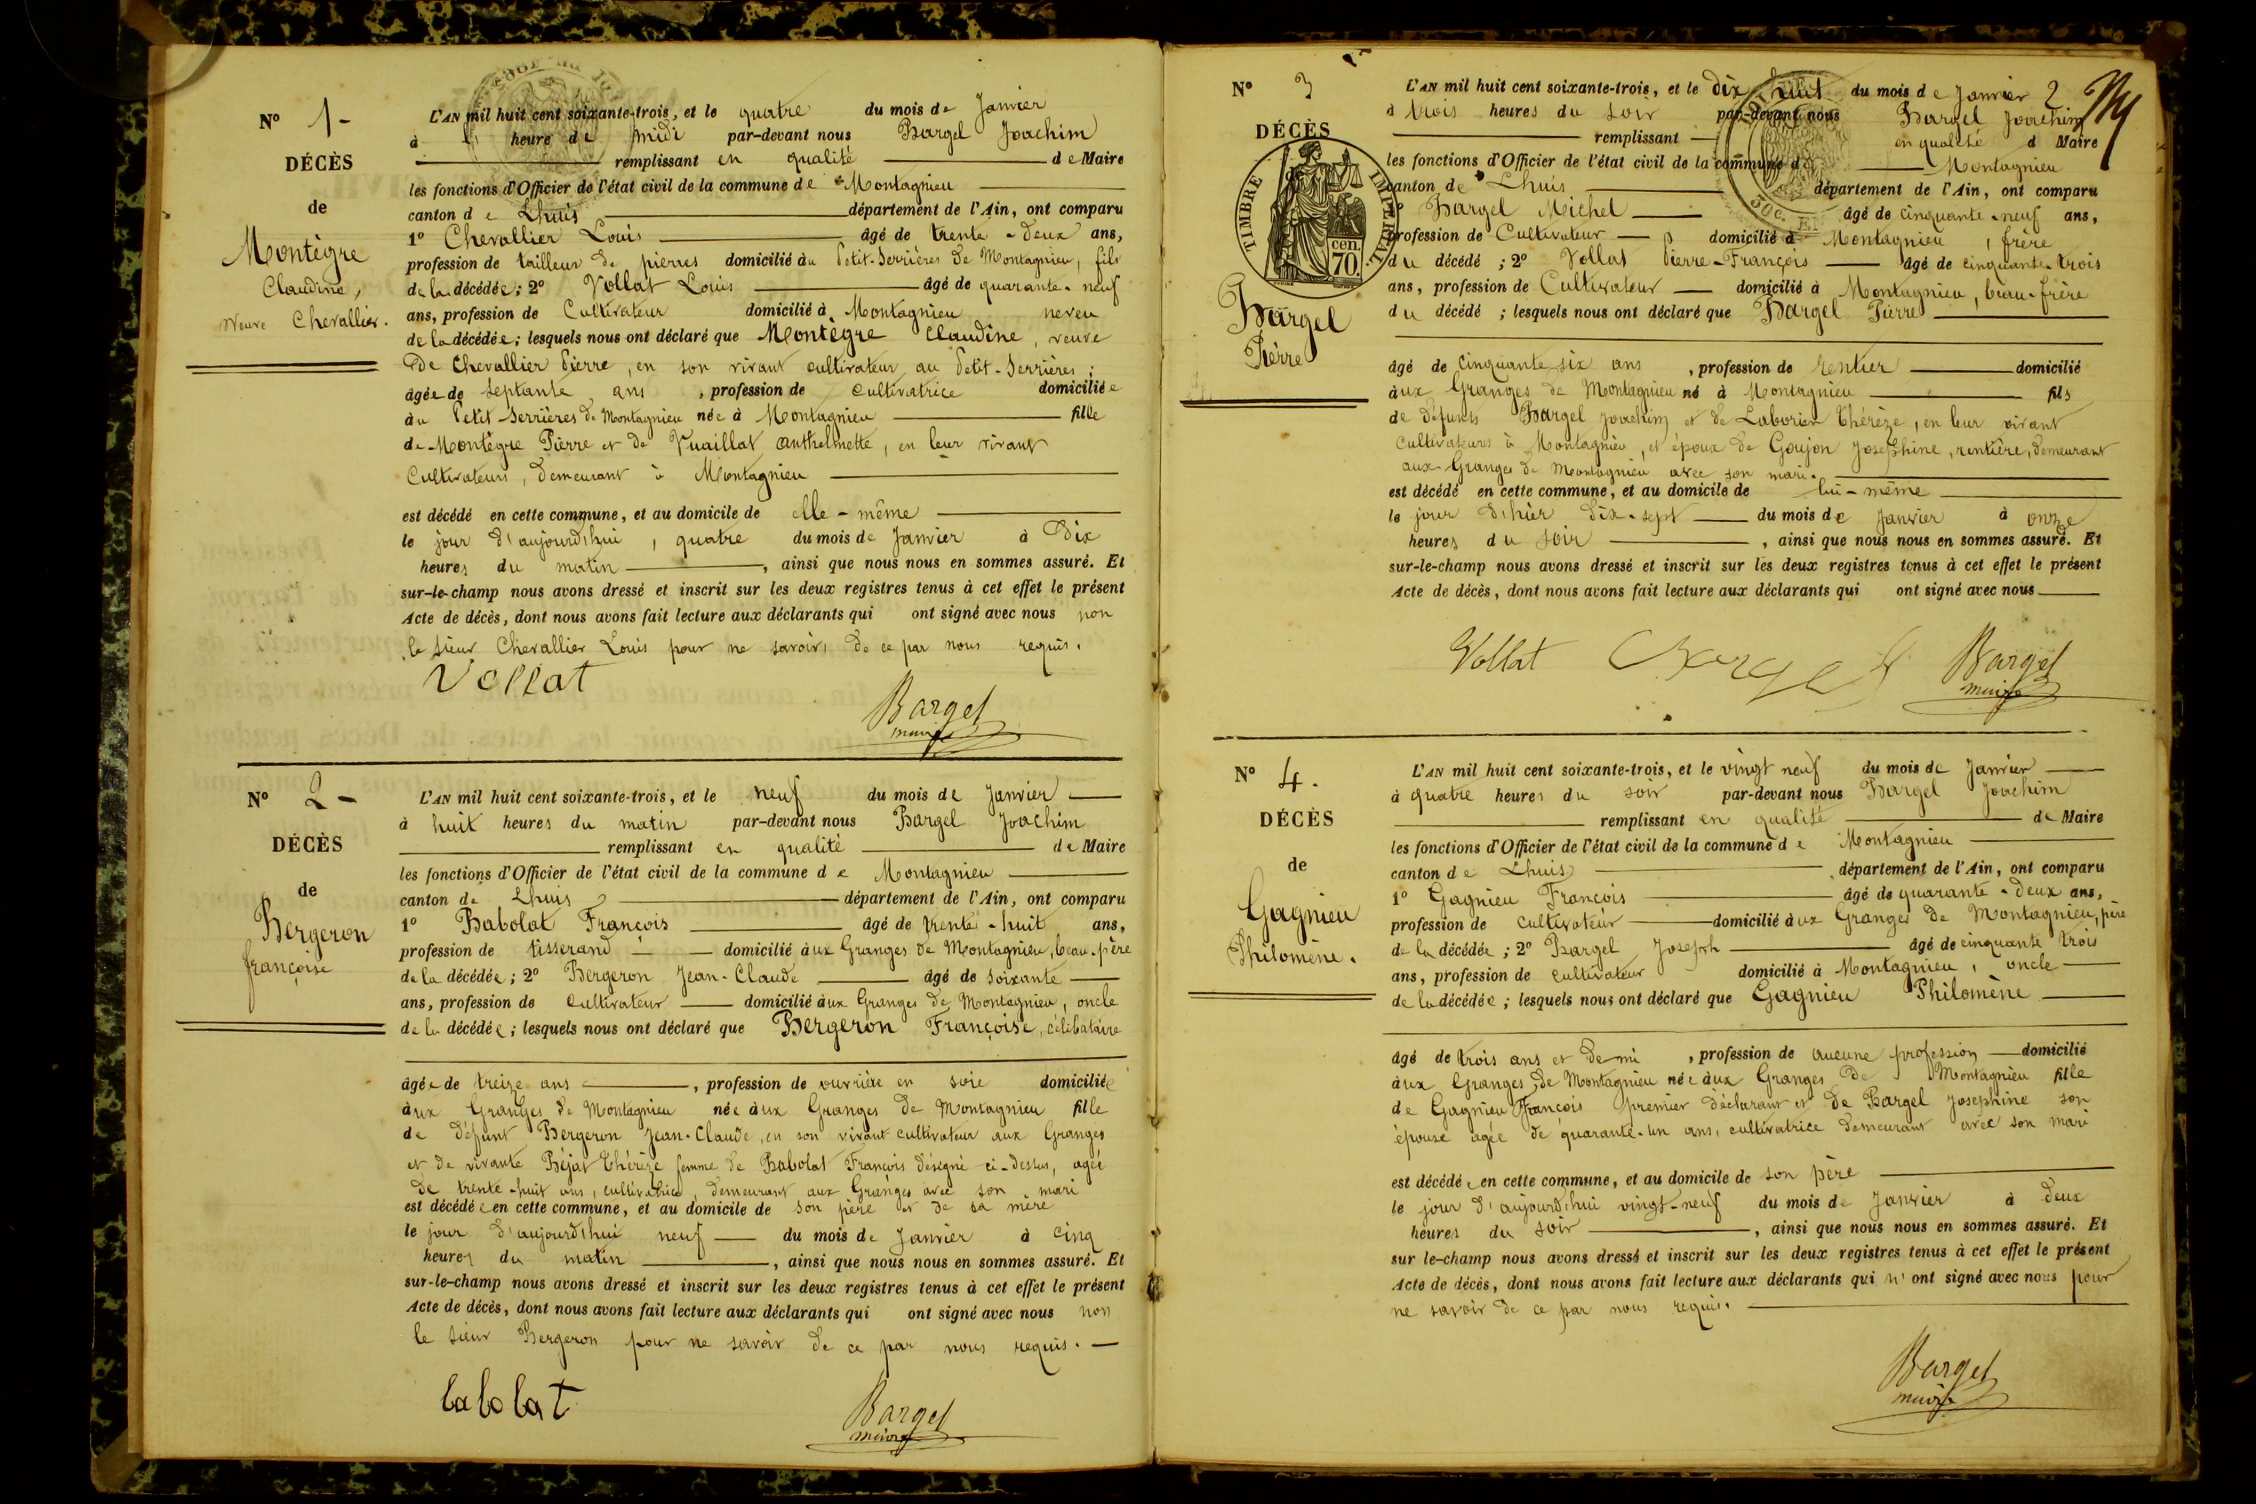 N° 1 -
DÉCÈS
de
Montègre
Claudine,
veuve Chevallier.
L'AN mil huit cent soixante-trois, et le quatre du mois de Janvier
à heure de midi par-devant nous Bargel Joachim
remplissant en qualité de Maire
les fonctions d'Officier de l'état civil de la commune de Montagnieu
canton de Lhuis département de l'Ain, ont comparu
1° Chevallier Louis âgé de trente-deux ans,
profession de tailleur de pierres domicilié au Petit-Serrières de Montagnieu, fils
de la décédée; 2° Vollat Louis âgé de quarante-neuf
ans, profession de Cultivateur domicilié à Montagnieu neveu
de la décédée; lesquels nous ont déclaré que Montègre Claudine, veuve
de Chevallier Pierre, en son vivant cultivateur au Petit-Serrières;
âgée de septante ans, profession de cultivatrice domiciliée
au Petit-Serrières de Montagnieu née à Montagnieu fille
de Montègre Pierre et de Vuaillat anthelmette, en leur vivant
Cultivateurs, demeurant à Montagnieu
est décédé en cette commune, et au domicile de elle-même
le jour d'aujourd'hui, quatre du mois de Janvier à Dix
heures du matin, ainsi que nous nous en sommes assuré. Et
sur-le-champ nous avons dressé et inscrit sur les deux registres tenus à cet effet le présent
Acte de décès, dont nous avons fait lecture aux déclarants qui ont signé avec nous non
le sieur Chevallier Louis pour ne savoir, de ce par nous requis.
Vollat
Bargel
maire
N° 2 -
DÉCÈS
de
Bergeron
françoise
L'AN mil huit cent soixante-trois, et le neuf du mois de Janvier
à huit heures du matin par-devant nous Bargel Joachim
remplissant en qualité de Maire
les fonctions d'Officier de l'état civil de la commune de Montagnieu
canton de Lhuis département de l'Ain, ont comparu
1° Babolat François âgé de trente-huit ans,
profession de tisserand domicilié aux Granges de Montagnieu, beau-père
de la décédée; 2° Bergeron Jean-Claude âgé de soixante
ans, profession de cultivateur domicilié aux Granges de Montagnieu, oncle
de la décédée; lesquels nous ont déclaré que Bergeron Françoise, célibataire
âgée de treize ans, profession de ouvrière en soie domiciliée
aux Granges de Montagnieu née aux Granges de Montagnieu fille
de défunt Bergeron Jean-Claude, en son vivant cultivateur aux Granges
et de vivante Béjat Thérèze femme de Babolat François désigné ci-dessus, agée
de trente-huit ans, cultivatrice, demeurant aux Granges avec son mari
est décédée en cette commune, et au domicile de son père et de sa mère
le jour d'aujourd'hui neuf du mois de Janvier à cinq
heures du matin, ainsi que nous nous en sommes assuré. Et
sur-le-champ nous avons dressé et inscrit sur les deux registres tenus à cet effet le présent
Acte de décès, dont nous avons fait lecture aux déclarants qui ont signé avec nous non
le sieur Bergeron pour ne savoir de ce par nous requis.
babolat
Bargel
maire
N° 3
DÉCÈS
TIMBRE IMPÉRIAL
70 cen.
Bargel
Pierre
L'AN mil huit cent soixante-trois, et le dix huit du mois de Janvier 2
à trois heures du soir par-devant nous Bargel Joachim
remplissant en qualité d Maire
les fonctions d'Officier de l'état civil de la commune d Montagnieu
canton de Lhuis département de l'Ain, ont comparu
1° Bargel Michel âgé de cinquante-neuf ans,
profession de Cultivateur domicilié à Montagnieu, frère
du décédé; 2° Vollat Pierre-François âgé de cinquante-trois
ans, profession de Cultivateur domicilié à Montagnieu, beau-frère
du décédé; lesquels nous ont déclaré que Bargel Pierre
âgé de cinquante-six ans, profession de rentier domicilié
aux Granges de Montagnieu né à Montagnieu fils
de défunts Bargel Joachim et de Laborier Thérèze, en leur vivant
cultivateurs à Montagnieu, et époux de Goujon Josephine, rentière, demeurant
aux Granges de Montagnieu avec son mari.
est décédé en cette commune, et au domicile de lui-même
le jour d'hier dix-sept du mois de Janvier à onze
heures du soir, ainsi que nous nous en sommes assuré. Et
sur-le-champ nous avons dressé et inscrit sur les deux registres tenus à cet effet le présent
Acte de décès, dont nous avons fait lecture aux déclarants qui ont signé avec nous
Vollat Bargel Bargel
maire
N° 4.
DÉCÈS
de
Gagnieu
Philomène.
L'AN mil huit cent soixante-trois, et le vingt neuf du mois de Janvier
à quatre heures du soir par-devant nous Bargel Joachim
remplissant en qualité de Maire
les fonctions d'Officier de l'état civil de la commune de Montagnieu
canton de Lhuis département de l'Ain, ont comparu
1° Gagnieu François âgé de quarante-deux ans,
profession de cultivateur domicilié aux Granges de Montagnieu, père
de la décédée; 2° Bargel Joseph âgé de cinquante trois
ans, profession de cultivateur domicilié à Montagnieu, oncle
de la décédée; lesquels nous ont déclaré que Gagnieu Philomène
âgé de trois ans et demi, profession de aucune profession domicilié
aux Granges de Montagnieu née aux Granges de Montagnieu fille
de Gagnieu François premier déclarant et de Bargel Josephine son
épouse agée de quarante-un ans, cultivatrice demeurant avec son mari
est décédée en cette commune, et au domicile de son père
le jour d'aujourd'hui vingt-neuf du mois de Janvier à deux
heures du soir, ainsi que nous nous en sommes assuré. Et
sur le-champ nous avons dressé et inscrit sur les deux registres tenus à cet effet le présent
Acte de décès, dont nous avons fait lecture aux déclarants qui n'ont signé avec nous pour
ne savoir de ce par nous requis.
Bargel
maire